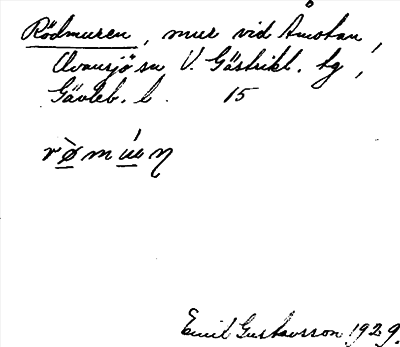 Rödmuren, mur vid Åmotan,
Ovansjö sn V. Gästrikl. tg,
Gävleb. l. 15
Emil Gustavsson 1929.